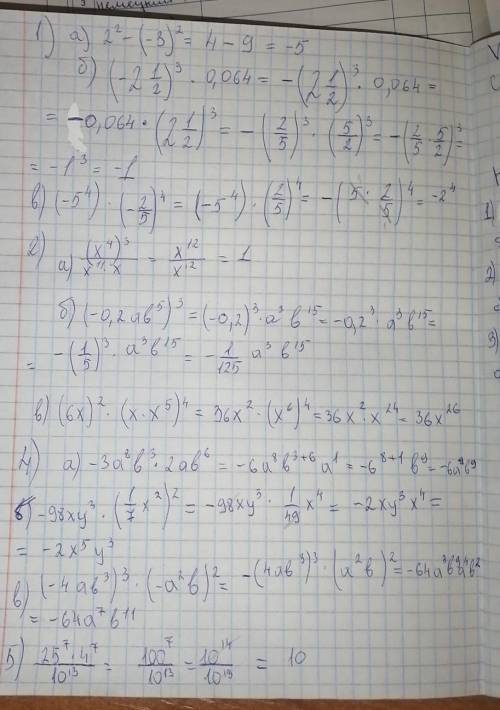 1) а) 2² - (-3)² = 4 - 9 = -5
б) (-2 1/2)³ · 0,064 = -(2 1/2)³ · 0,064 =
= -0,064 · (2 1/2)³ = -(2/5)³ · (5/2)³ = -(2/5 · 5/2)³ =
= -1³ = -1
в) (-5⁴) · (-2/5)⁴ = (-5⁴) · (2/5)⁴ = -(5 · 2/5)⁴ = -2⁴
2) а) (x⁴)³/x¹¹·x = x¹²/x¹² = 1
б) (-0,2ab⁵)³ = (-0,2)³ · a³b¹⁵ = -0,2³ · a³b¹⁵ =
= -(1/5)³ · a³b¹⁵ = -1/125 a³b¹⁵
в) (6x)² · (x·x⁵)⁴ = 36x² · (x⁶)⁴ = 36x² · x²⁴ = 36x²⁶
4) а) -3a⁸b³ · 2ab⁶ = -6a⁸b³⁺⁶a¹ = -6⁸⁺¹b⁹ = -6a⁹b⁹
б) -98xy³ · (1/7 x²)² = -98xy³ · 1/49 x⁴ = -2xy³x⁴ =
= -2x⁵y³
в) (-4ab³)³ · (-a²b)² = -(4ab³)³ · (a²b)² = -64a³b⁹a⁴b²
= -64a⁷b¹¹
5) 25⁷·4⁷/10¹³ = 100⁷/10¹³ = 10¹⁴/10¹³ = 10